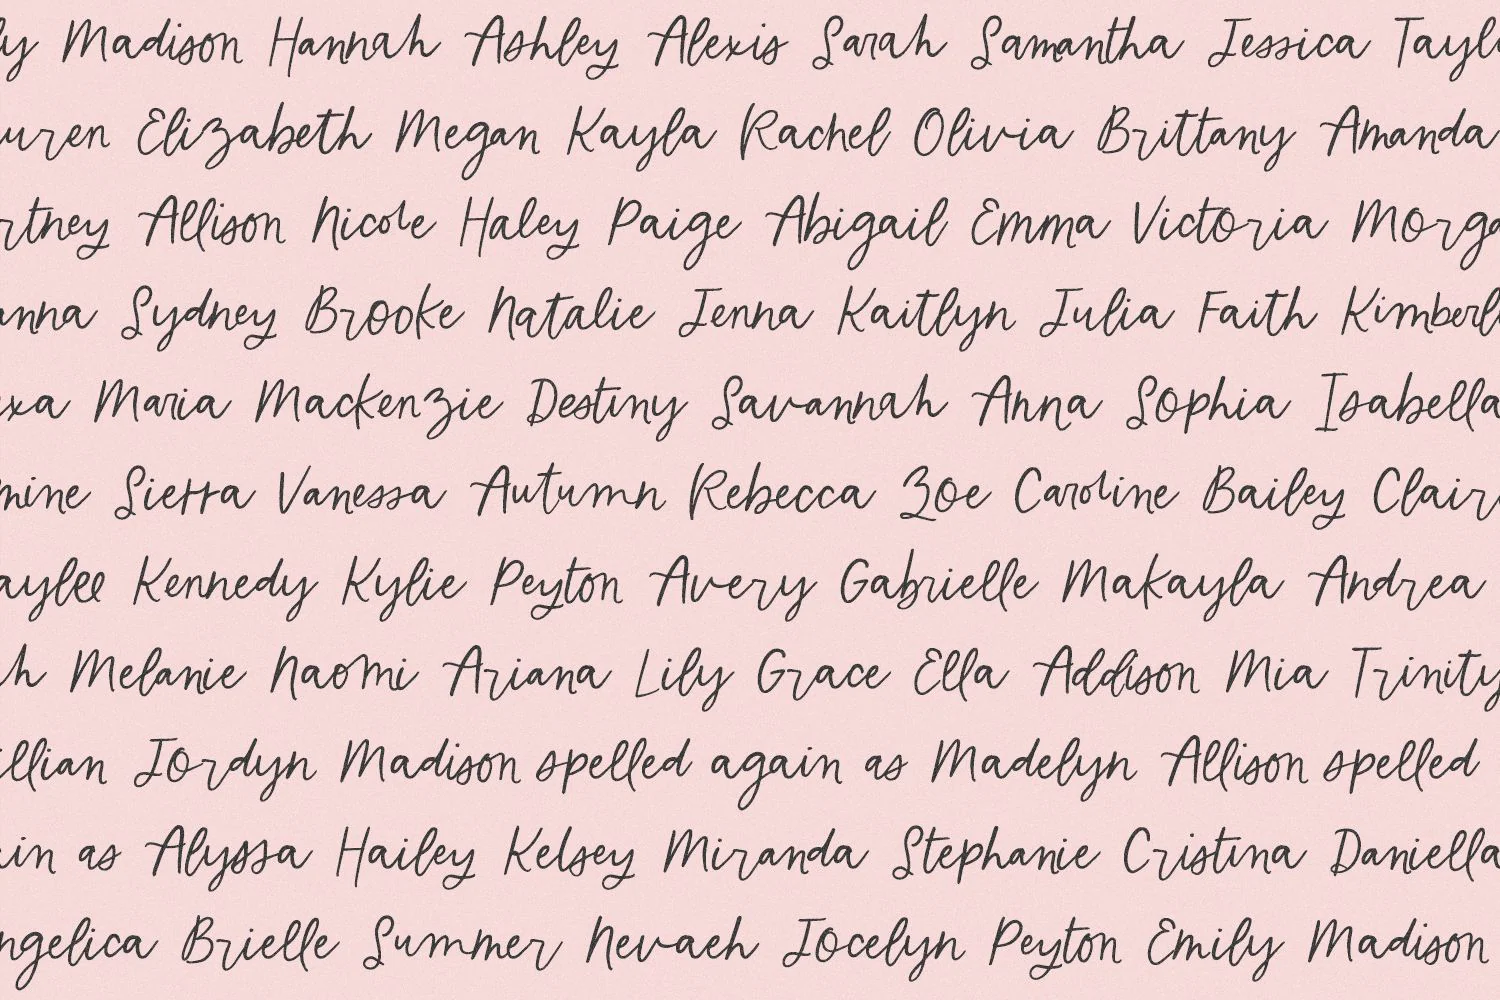 ly Madison Hannah Ashley Alexis Sarah Samantha Jessica Taylo
uren Elizabeth Megan Kayla Rachel Olivia Brittany Amanda
rtney Allison Nicole Haley Paige Abigail Emma Victoria Morga
anna Sydney Brooke Natalie Jenna Kaitlyn Julia Faith Kimberl
exa Maria Mackenzie Destiny Savannah Anna Sophia Isabella
mine Sierra Vanessa Autumn Rebecca Zoe Caroline Bailey Clair
aylee Kennedy Kylie Peyton Avery Gabrielle Makayla Andrea
h Melanie Naomi Ariana Lily Grace Ella Addison Mia Trinity
illian Jordyn Madison spelled again as Madelyn Allison spelled
ain as Alyssa Hailey Kelsey Miranda Stephanie Cristina Daniella
ngelica Brielle Summer Nevaeh Jocelyn Peyton Emily Madison